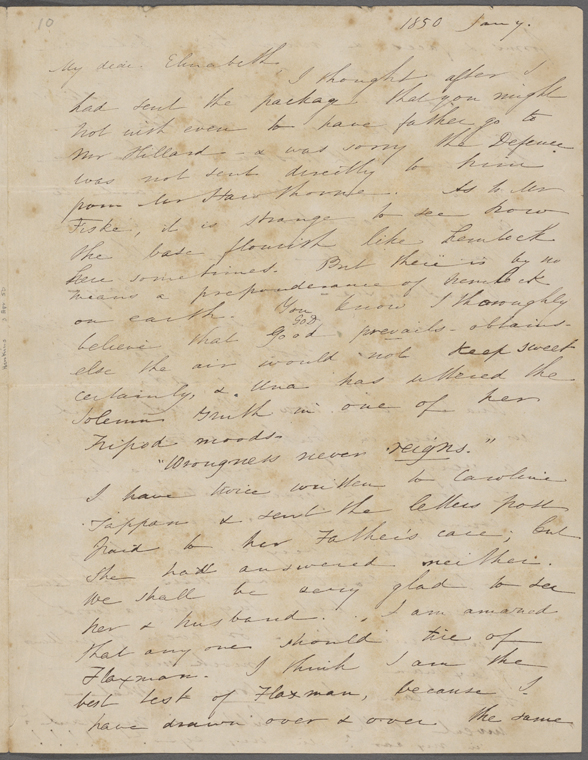 10
1850 Jany.
My dear Elizabeth
I thought after I
had sent the package that you might
not wish even to have father go to
Mr Hillard & was sorry the Defence
was not sent directly to him
from Mr Hawthorne. As to Mr
Fiske, it is strange to see how
the base flourish like hemlock
here sometimes. But there is by no
means a preponderance of hemlock
on earth. You know I thoroughly
God
believe that Good prevails - obtains -
else the air would not keep sweet
certainly, & Una has uttered the
solemn truth in one of her
Tripod moods.
"Wrongness never reigns."
I have twice written to Caroline
Tappan & sent the letters post
paid to her Father's care; but
she had answered neither.
We shall be very glad to see
her & husband. I am amazed
that any one should tire of
Flaxman. I think I am the
best test of Flaxman, because I
have drawn over & over the same